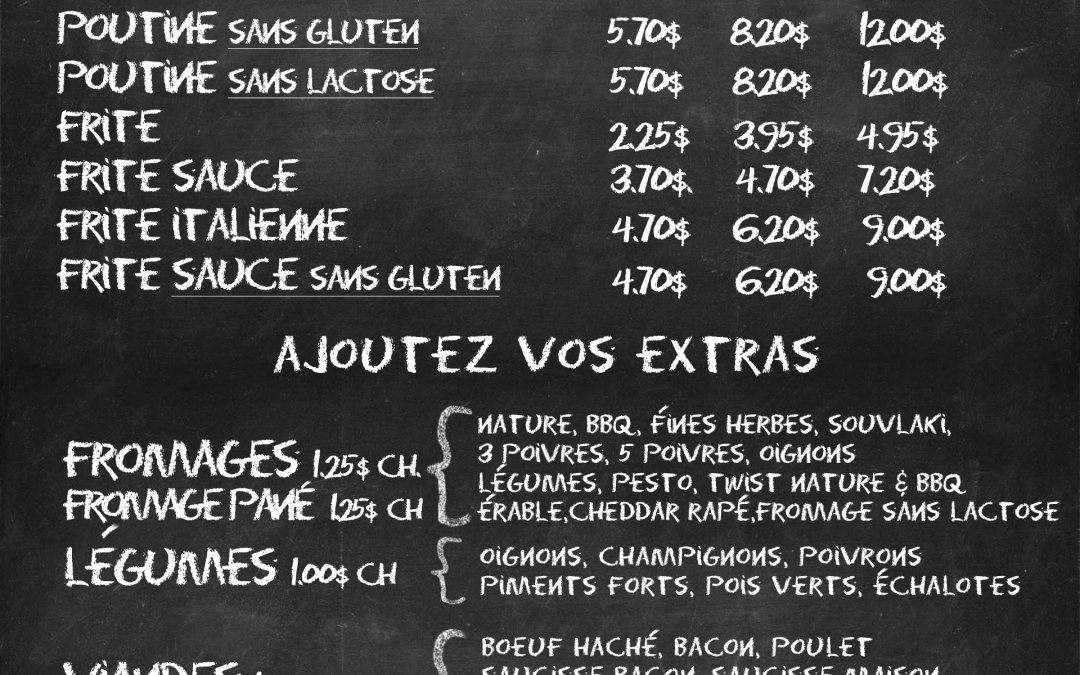 POUTINE SANS GLUTEN 5.70$ 8.20$ 12.00$
POUTINE SANS LACTOSE 5.70$ 8.20$ 12.00$
FRITE 2.25$ 3.95$ 4.95$
FRITE SAUCE 3.70$. 4.70$ 7.20$
FRITE ITALIENNE 4.70$ 6.20$ 9.00$
FRITE SAUCE SANS GLUTEN 4.70$ 6.20$ 9.00$
AJOUTEZ VOS EXTRAS
FROMAGES 1.25$ CH.
FROMAGE PANÉ 1.25$ CH
NATURE, BBQ, FINES HERBES, SOUVLAKI,
3 POIVRES, 5 POIVRES, OIGNONS
LÉGUMES, PESTO, TWIST NATURE & BBQ
ÉRABLE,CHEDDAR RAPÉ,FROMAGE SANS LACTOSE
LÉGUMES 1.00$ CH
OIGNONS, CHAMPIGNONS, POIVRONS
PIMENTS FORTS, POIS VERTS, ÉCHALOTES
VIANDES
BOEUF HACHÉ, BACON, POULET
SAUCISSE BACON, SAUCISSE MAISON